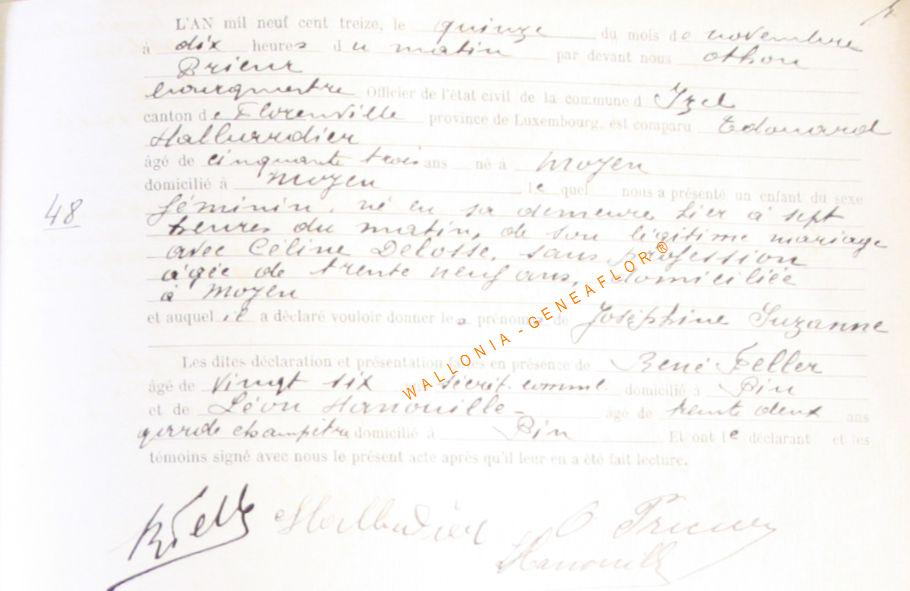 L'AN mil neuf cent treize, le quinze du mois de novembre
à dix heures du matin par devant nous Othon
Prieur
bourgmestre Officier de l'état civil de la commune d Izel
canton de Florenville province de Luxembourg, est comparu Edouard
Hallurdier
âgé de cinquante trois ans né à Moyen
domicilié à Moyen , le quel nous a présenté un enfant du sexe
48
féminin, né en sa demeure hier à sept
heures du matin, de son légitime mariage
avec Céline Delosse, sans profession
âgée de trente neuf ans, domiciliée
à Moyen
et auquel il a déclaré vouloir donner les prénoms de Joséphine Suzanne
Les dites déclaration et présentation faites en présence de René Feller
âgé de vingt six secrét. comml domicilié à Pin
et de Léon Hanouille - âgé de trente deux ans
garde champêtre domicilié à Pin Et ont le déclarant et les
témoins signé avec nous le présent acte après qu'il leur en a été fait lecture.
WALLONIA - GENEAFLOR®
O Prieur
Hanouille